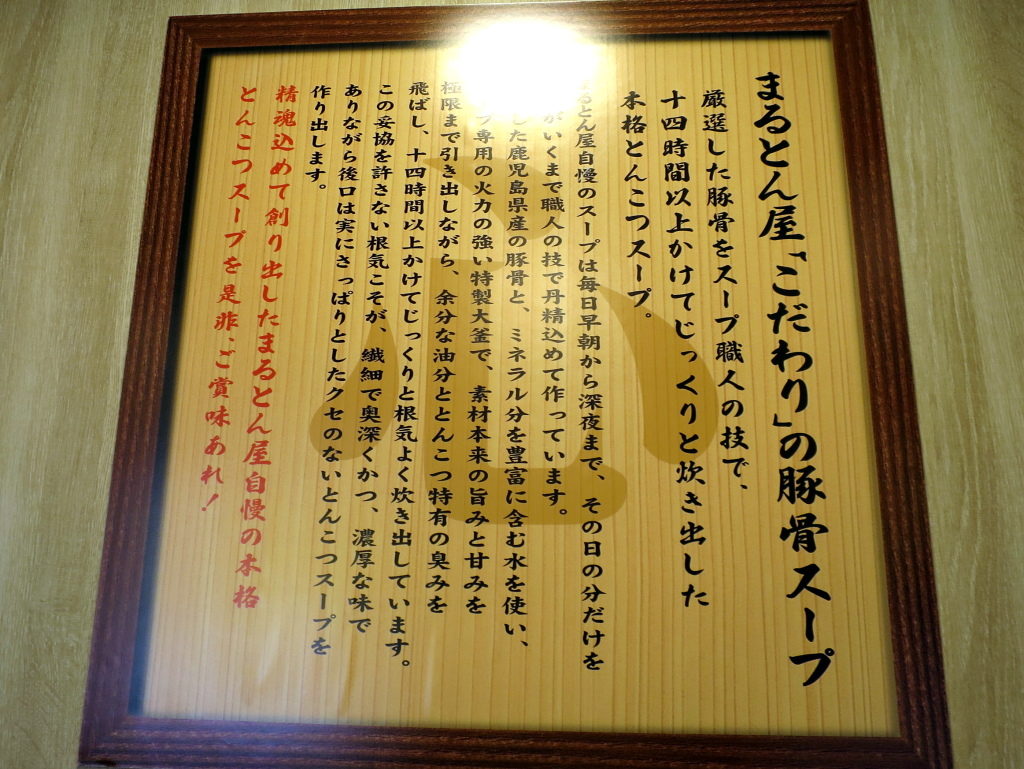 まるとん屋「こだわり」の豚骨スープ
厳選した豚骨をスープ職人の技で、
十四時間以上かけてじっくりと炊き出した
本格とんこつスープ。
るとん屋自慢のスープは毎日早朝から深夜まで、その日の分だけを
がいくまで職人の技で丹精込めて作っています。
した鹿児島県産の豚骨と、ミネラル分を豊富に含む水を使い、
プ専用の火力の強い特製大釜で、素材本来の旨みと甘みを
極限まで引き出しながら、余分な油分ととんこつ特有の臭みを
飛ばし、十四時間以上かけてじっくりと根気よく炊き出しています。
この妥協を許さない根気こそが、繊細で奥深くかつ、濃厚な味で
ありながら後口は実にさっぱりとしたクセのないとんこつスープを
作り出します。
精魂込めて創り出したまるとん屋自慢の本格
とんこつスープを是非、ご賞味あれ！